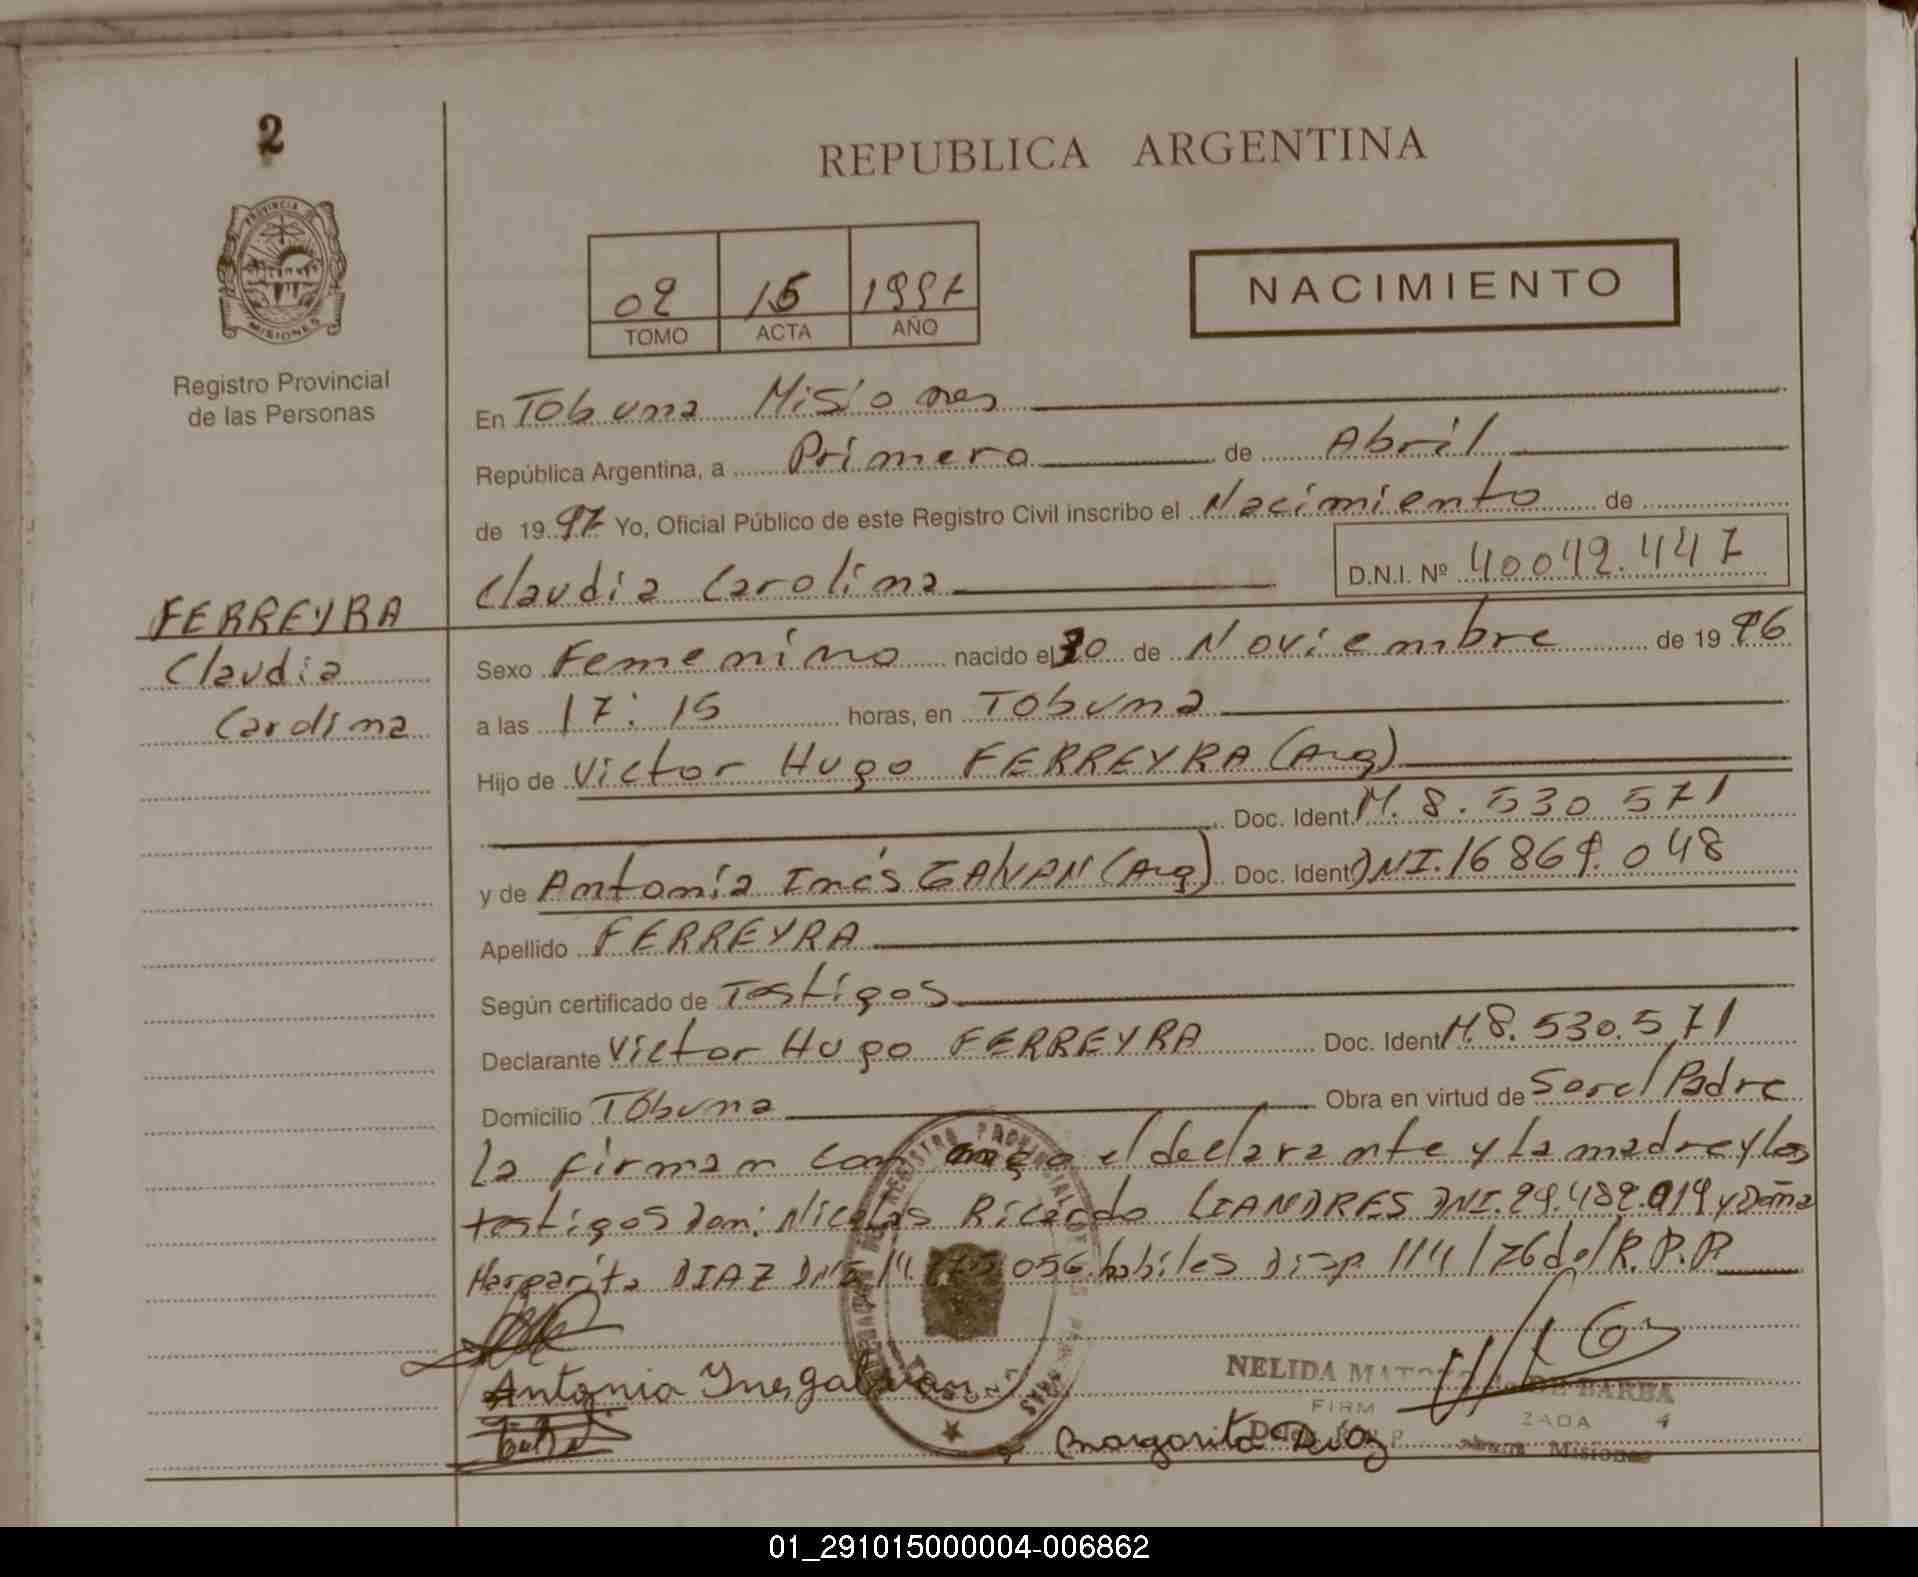 2
REPUBLICA ARGENTINA
PROVINCIA DE
MISIONES
Registro Provincial
de las Personas
02 15 1997
TOMO ACTA AÑO
NACIMIENTO
En Tobuna Misiones
República Argentina, a Primero de Abril
de 1997 Yo, Oficial Público de este Registro Civil inscribo el Nacimiento de
Claudia Carolina D.N.I. Nº 40042.447
FERREYRA
Claudia
Carolina
Sexo Femenino nacido el 30 de Noviembre de 1996
a las 17:15 horas, en Tobuna
Hijo de Victor Hugo FERREYRA (Arg)
Doc. Ident. M. 8.530 571
y de Antonia Inés GALVAN (Arg) Doc. Ident DNI. 16869.048
Apellido FERREYRA
Según certificado de Testigos
Declarante Victor Hugo FERREYRA Doc. Ident M.8.530.571
Domicilio Tobuna Obra en virtud de Ser el Padre
La firman con el declarante y la madre y los
testigos Don: Nicolas Ricardo LIANDRES DNI.29.482.019 y Doña
Margarita DIAZ DNI 14. 056 habiles Disp 114/76 del R.P.P.
Antonia Ines galvan
NELIDA DE BARBA
FIRM ZADA 4
Margarita Diaz
Misiones
01_291015000004-006862